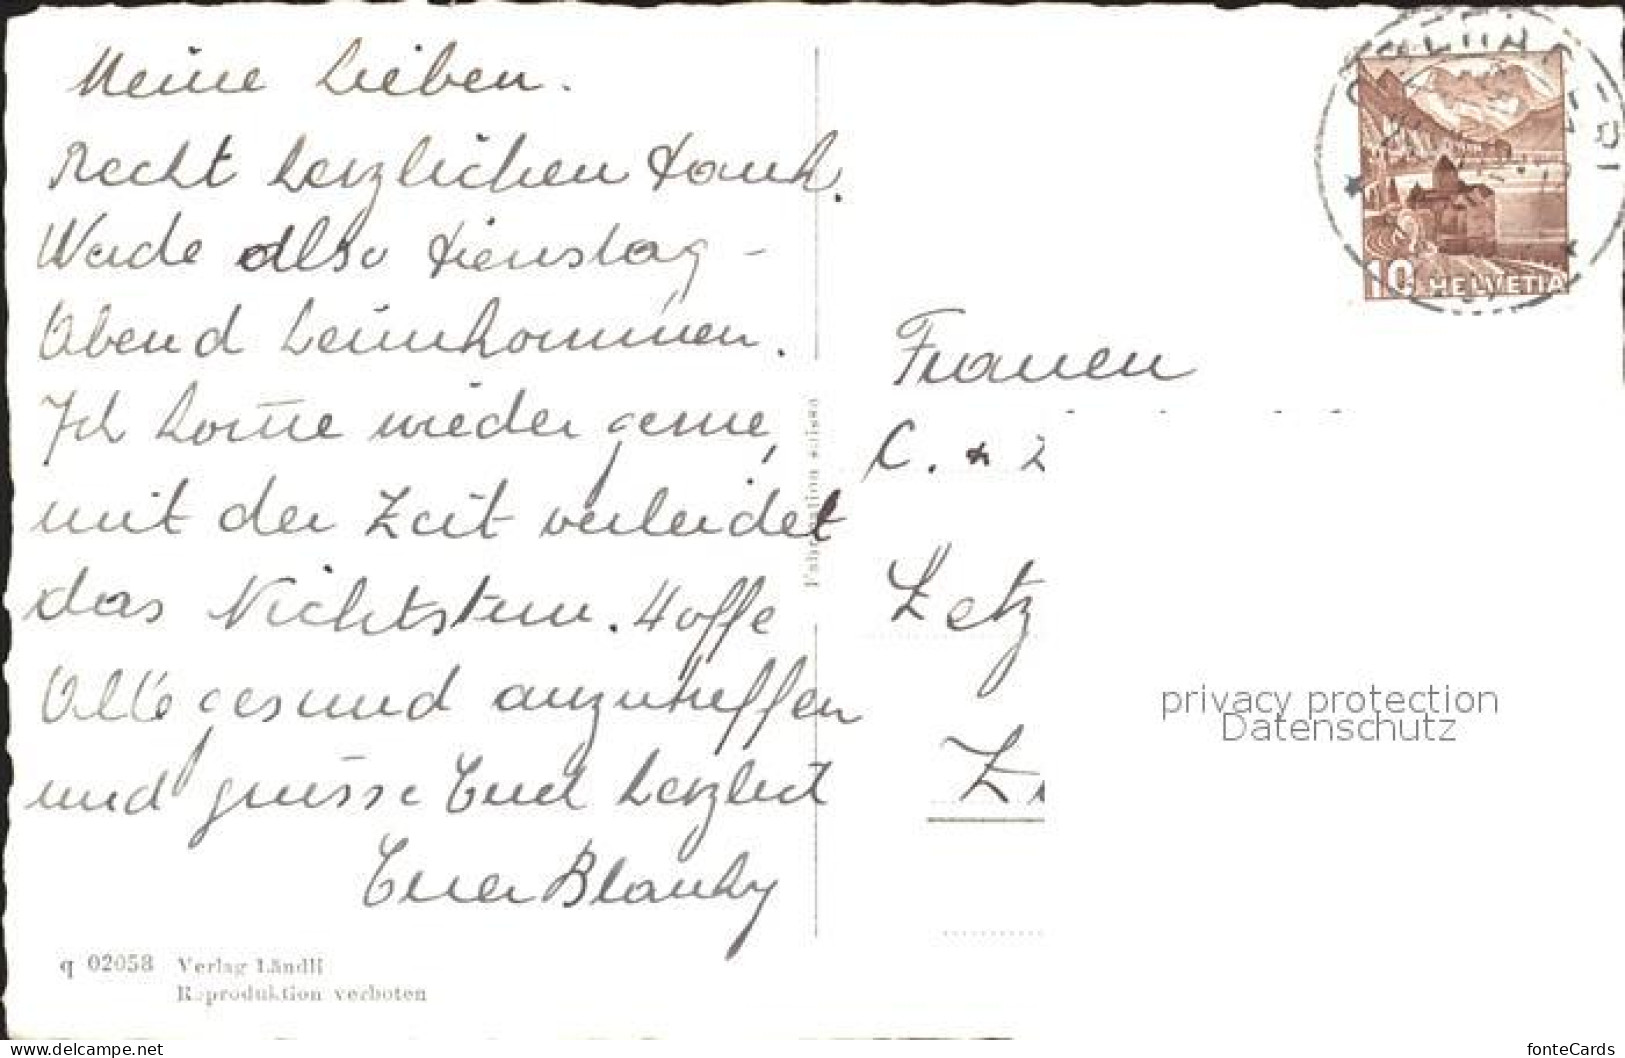 Meine Lieben.
Recht herzlichen Dank.
Werde also Dienstag-
Abend heimkommen.
Ich kom̅e wieder gerne,
mit der Zeit verleidet
das Nichtstun. Hoffe
Alle gesund anzutreffen
und grüsse Euch herzlich
Euer Blanky
q 02058 Verlag Ländli
Reproduktion verboten
Fabrication suisse
10 HELVETIA
Frauen
C. + Z
Letz
privacy protection
Datenschutz
www.delcampe.net
your_plz
fonteCards